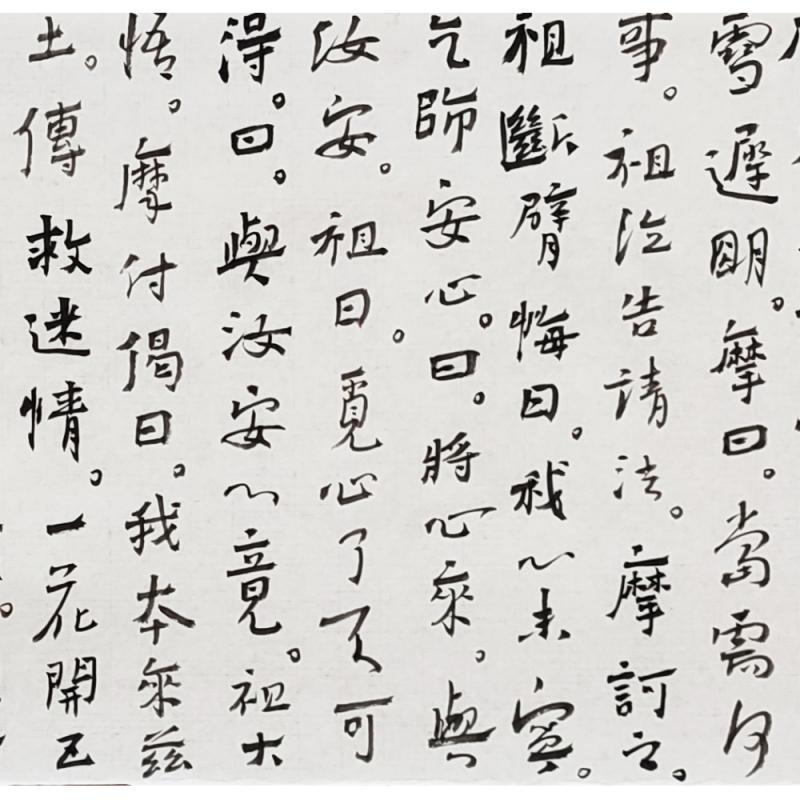 雪遲明。摩曰。當需何
事。祖泣告請法。摩訶之。
祖斷臂悔曰。我心未寧。
乞師安心。曰。將心來。與
汝安。祖曰。覓心了不可
得。曰。與汝安心竟。祖大
悟。摩付偈曰。我本來茲
土。傳救迷情。一花開五